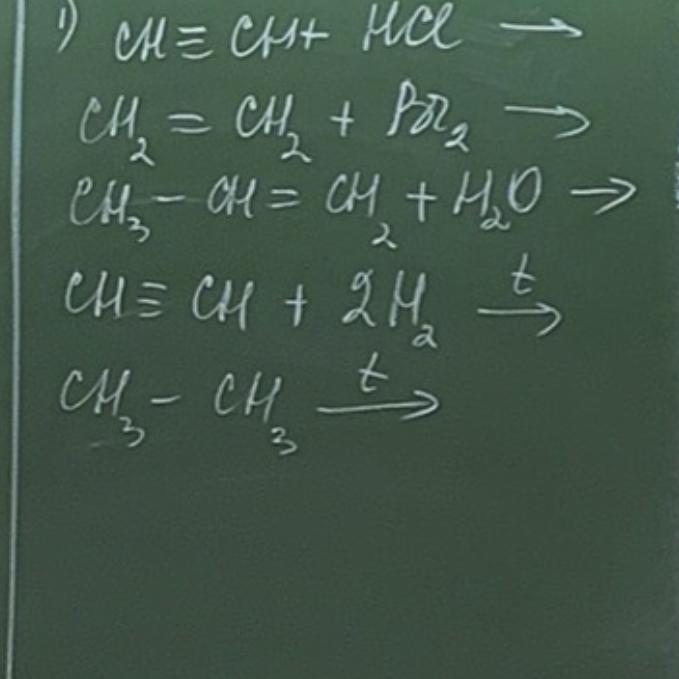 1) CH≡CH+ HCl →
CH₂ = CH₂ + Br₂ →
CH₃ – CH = CH₂ + H₂O →
CH≡ CH + 2H₂ t→
CH₃ – CH₃ t→